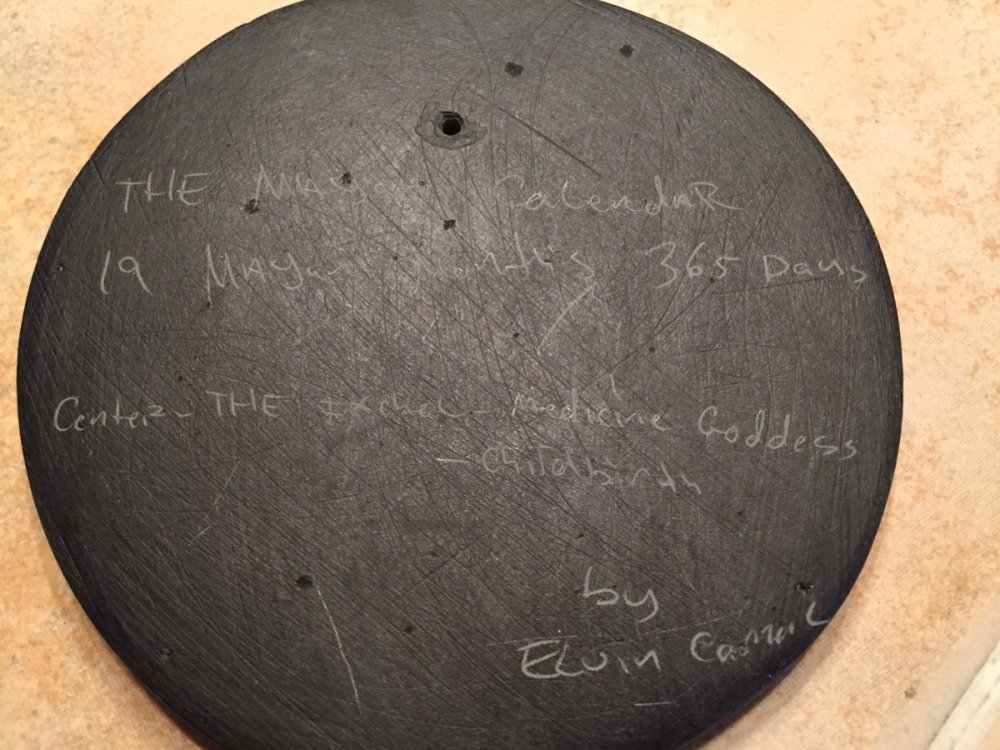 THE MAyan CalendaR
19 MAyan Months 365 Days
Center - THE Ixchel - Medicine Goddess
- Childbirth
by
ELvin